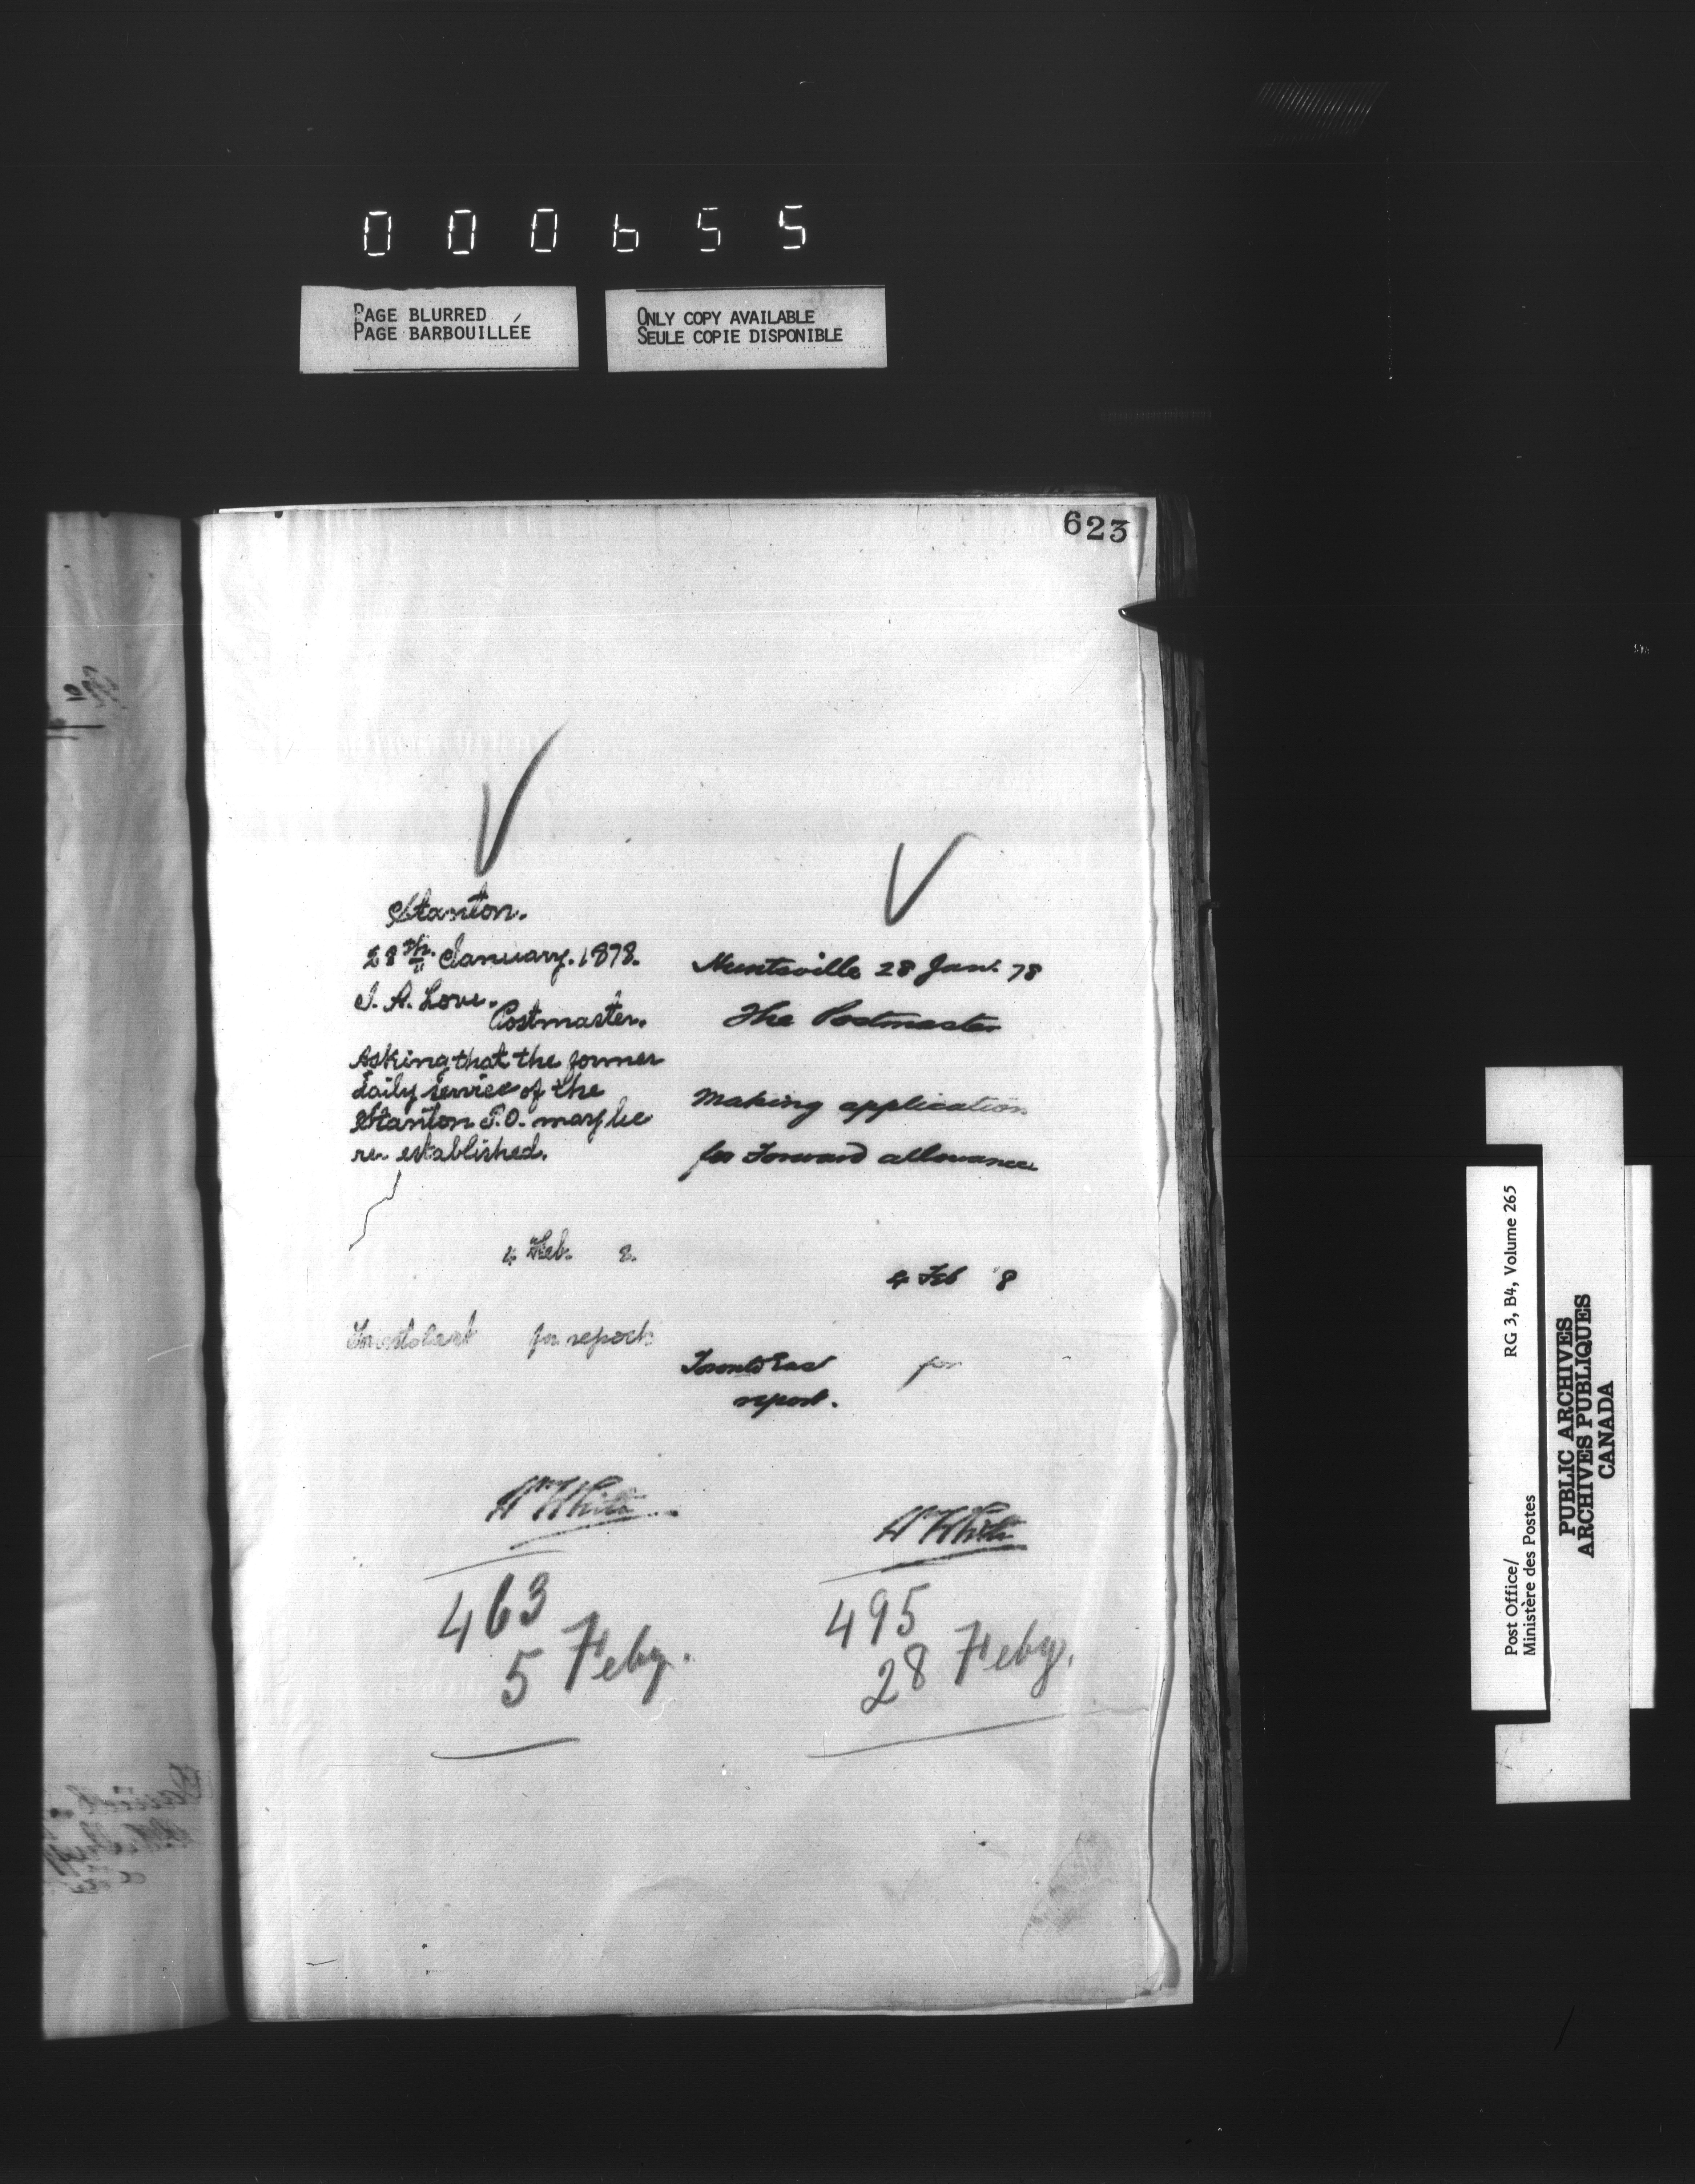 000655
PAGE BLURRED
PAGE BARBOUILLÉE
ONLY COPY AVAILABLE
SEULE COPIE DISPONIBLE
623
Stanton.
28th January. 1878.
J. A. Love.
Postmaster.
Asking that the former
daily service of the
Stanton P.O. may be
re established.
4 Feb. 8.
for report
Wm White
463
5 Feby.
Huntsville 28 Jan. 78
The Postmaster
Making application
for Forward allowance
4 Feb 8
Toronto East for
report.
Wm White
495
28 Feby.
Post Office/
Ministère des Postes
RG 3, B4, Volume 265
PUBLIC ARCHIVES
ARCHIVES PUBLIQUES
CANADA